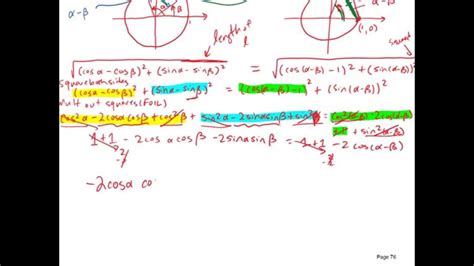 α-β
α-β
(1,0)
length of
l
√(cosα-cosβ)²+(sinα-sinβ)² = √(cos(α-β)-1)²+(sin(α-β))²
square both sides
(cosα-cosβ)²+(sinα-sinβ)² = (cos(α-β)-1)²+(sin(α-β))²
mult out squares (FOIL)
cos²α-2cosαcosβ+cos²β+sin²α-2sinαsinβ+sin²β = cos²(α-β)-2cos(α-β)
+1+sin²(α-β)
1+1 -2cosαcosβ -2sinαsinβ = 1+1 -2cos(α-β)
-2 -2
-2cosα co
Page 76